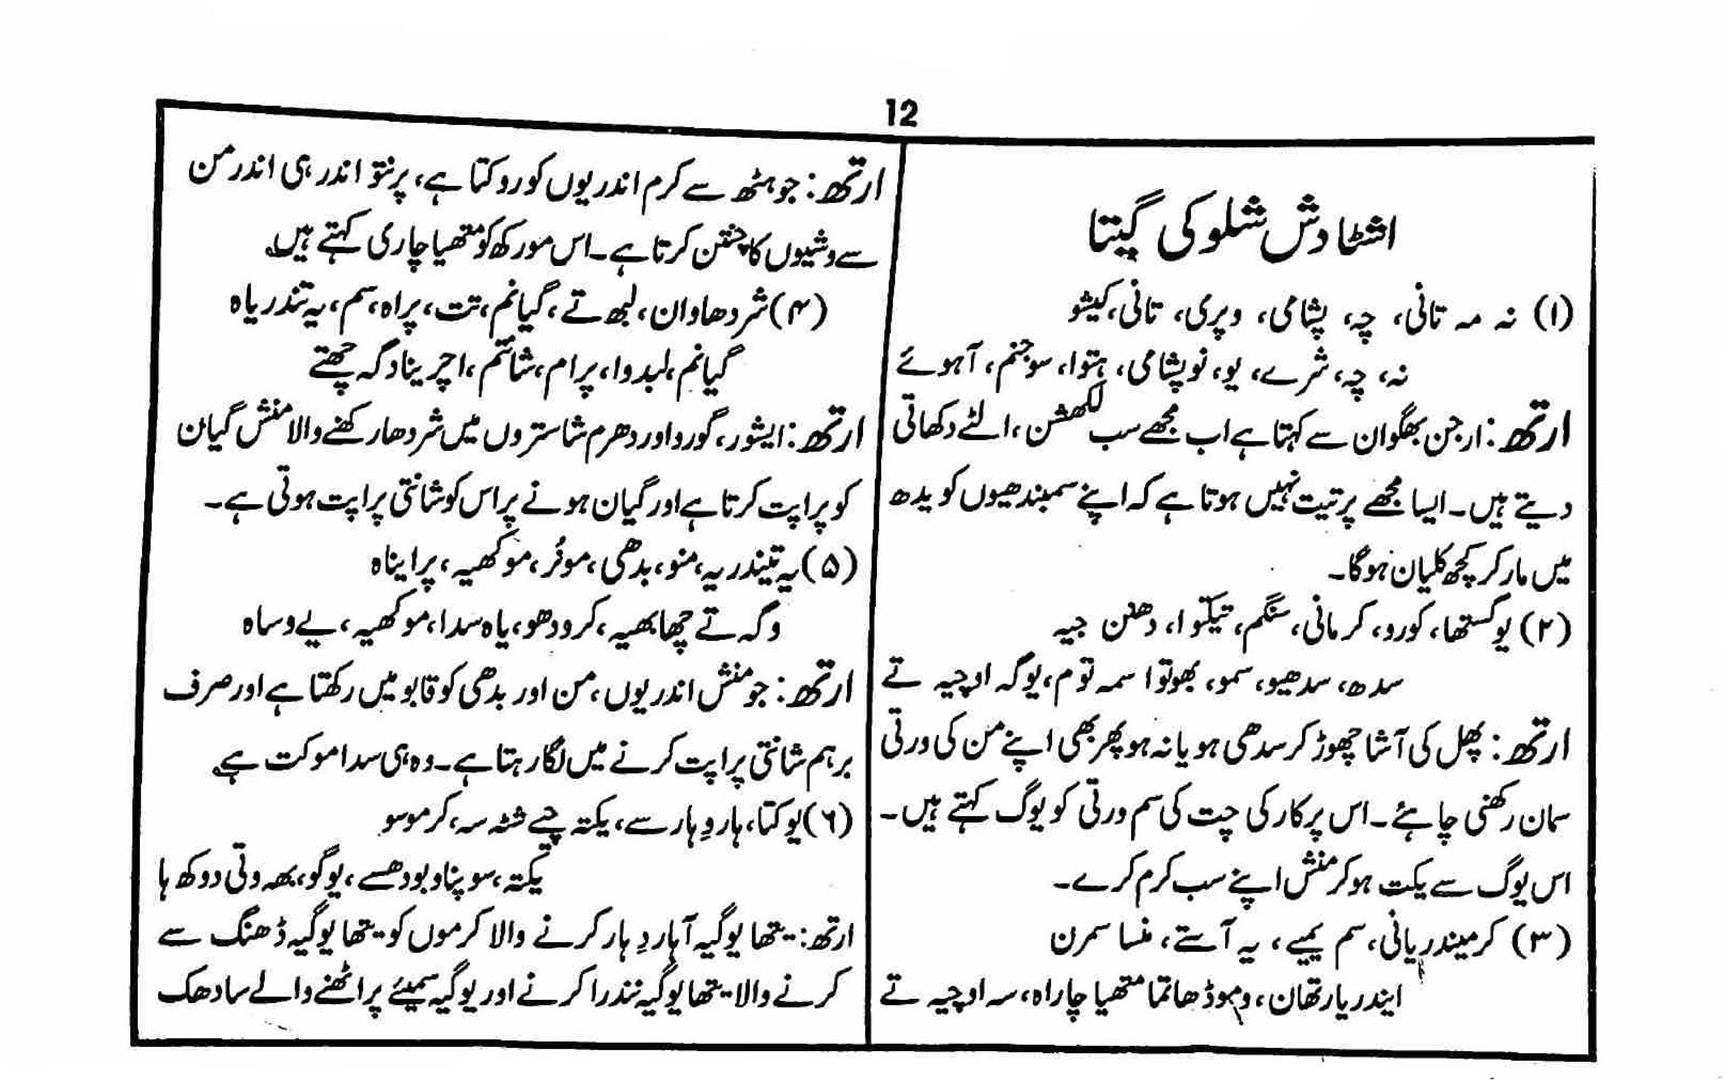 12
اشٹادش شلوکی گیتا
(۱) نہ مہ تانی، چہ، پشامی، وپری، تانی، کیشو
نہ، چہ، شرے، یو، نوپشامی، ہتوا، سوجنم، آہوئے
ارتھ: ارجن بھگوان سے کہتا ہے اب مجھے سب لکھشن، الٹے دکھائی
دیتے ہیں۔ ایسا مجھے پرتیت نہیں ہوتا ہے کہ اپنے سمبندھیوں کو یدھ
میں مار کر کچھ کلیان ہوگا۔
(۲) یوگستھا، کورو، کرمانی، سنگم، تیکتوا، دھنن جیہ
سدھ، سدھیو، سمو، بھوتوا سمہ توم، یوگہ اوچیہ تے
ارتھ: پھل کی آشا چھوڑ کر سدھی ہو یا نہ ہو پھر بھی اپنے من کی ورتی
سمان رکھنی چاہئے۔ اس پرکار کی چت کی سم ورتی کو یوگ کہتے ہیں۔
اس یوگ سے یکت ہوکر منش اپنے سب کرم کرے۔
(۳) کرمیندریانی، سم یمیے، یہ آستے، منسا سمرن
ایندریارتھان، وموڈھاتما متھیا چاراہ، سہ اوچیہ تے
ارتھ: جو ہٹھ سے کرم اندریوں کو روکتا ہے، پرنتو اندر ہی اندر من
سے وشیوں کا چنتن کرتا ہے۔ اس مورکھ کو متھیا چاری کہتے ہیں۔
(۴) شردھاوان، لبھ تے، گیانم، تت، پراہ، سم، یہ تندریاہ
گیانم، لبدوا، پرام، شانتم، اچرینادگہ چھتے
ارتھ: ایشور، گورو اور دھرم شاستروں میں شردھا رکھنے والا منش گیان
کو پراپت کرتا ہے اور گیان ہونے پر اس کو شانتی پراپت ہوتی ہے۔
(۵) یہ تیندریہ، منو، بدھی، موئر، موکھیہ، پرایناہ
وگہ تے چھا بھیہ، کرودھو، یاہ سدا، موکھیہ، یے وساہ
ارتھ: جو منش اندریوں، من اور بدھی کو قابو میں رکھتا ہے اور صرف
برہم شانتی پراپت کرنے میں لگا رہتا ہے۔ وہ ہی سدا موکت ہے
(۶) یوکتا، ہار وِہار سے، یکتہ چے شٹہ سہ، کرموسو
یکتہ، سوپناوبودھسے، یوگو، بھہ وتی دوکھ ہا
ارتھ: یتھا یوگیہ آہار دِہار کرنے والا کرموں کو یتھا یوگیہ ڈھنگ سے
کرنے والا یتھا یوگیہ نندرا کرنے اور یوگیہ سمیئے پر اٹھنے والے سادھک